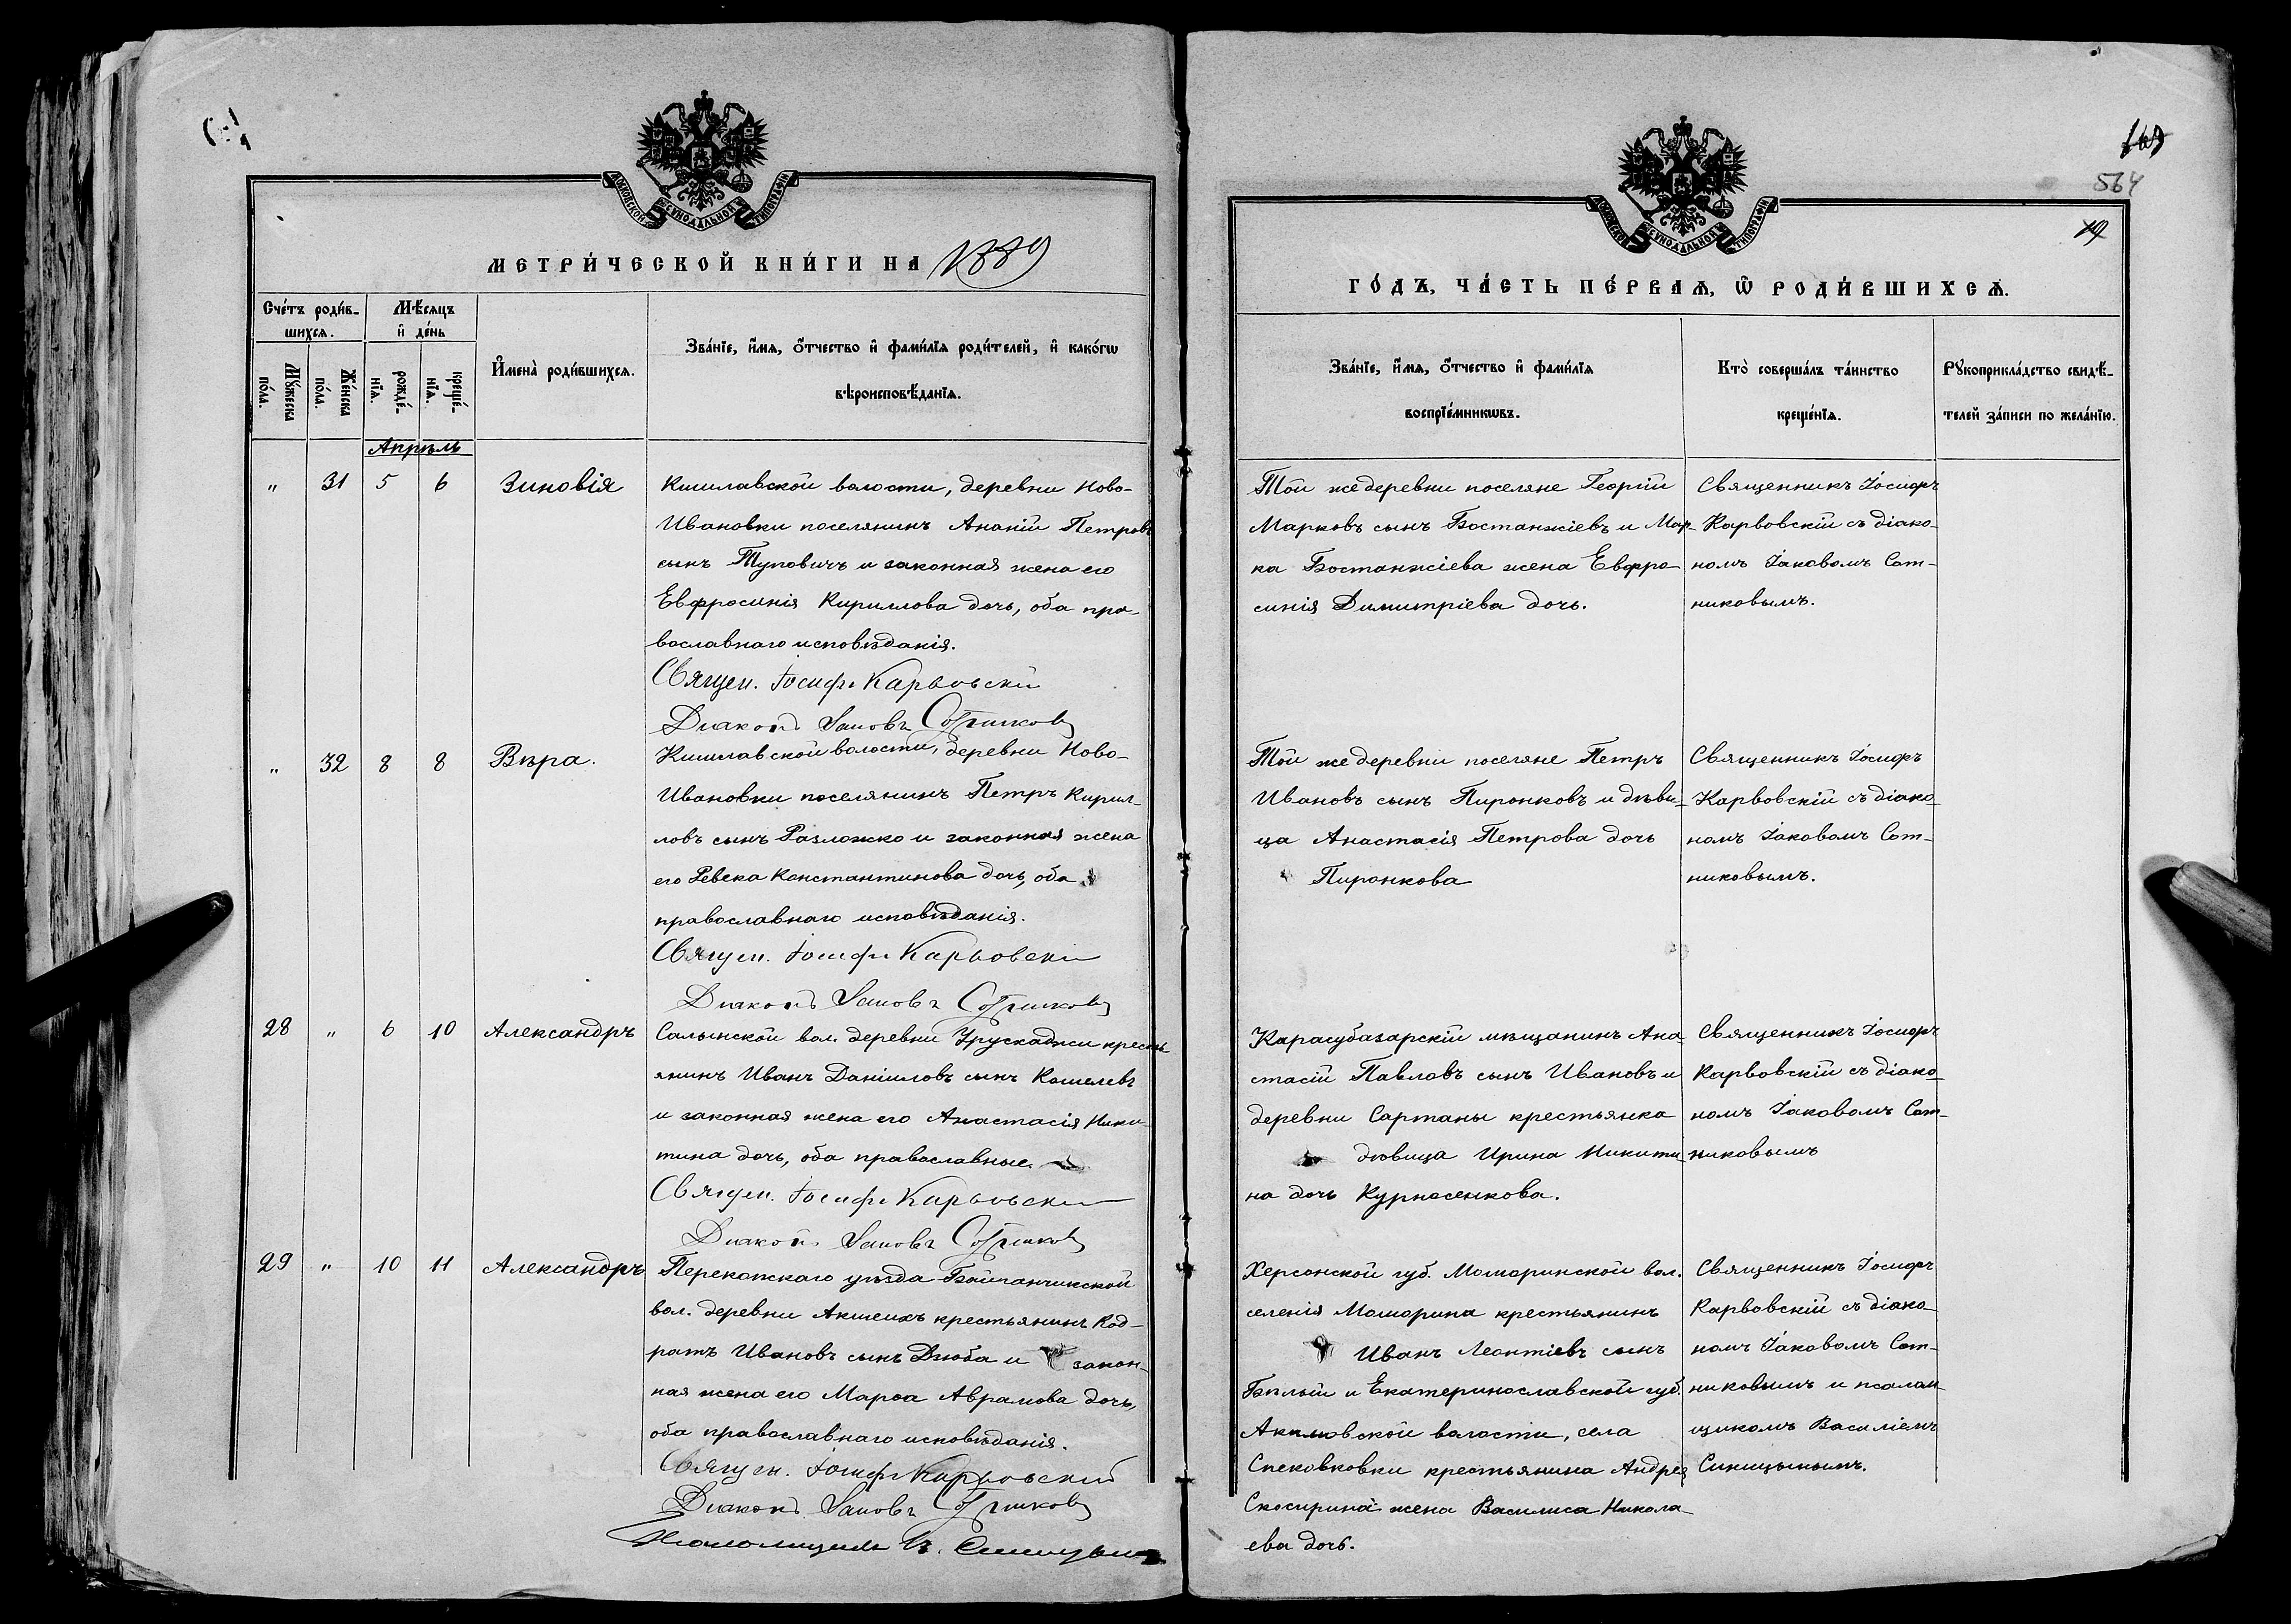 МОСКОВСКОЙ СѴНОДАЛЬНОЙ ТИПОГРАФІИ
МЕТРИ́ЧЕСКОЙ КНИ́ГИ НА 1889
Сче́тъ роди́в-
шихсѧ.
Мѣ́сѧцъ
и҆ де́нь
Мꙋ́жеска
по́ла.
Же́нска
по́ла.
рожде́-
нїѧ.
креще́-
нїѧ.
И҆мена̀ роди́вшихсѧ.
Зва́нїе, и҆́мѧ, ѻ҆́тчество и҆ фами́лїѧ роди́телей, и҆ како́гѡ
вѣроисповѣ́данїѧ.
Апрѣль
" 31 5 6 Зиновія
Кишлавской волости, деревни Ново-
Ивановки поселянинъ Ананій Петровъ
сынъ Туповичъ и законная жена его
Евфросинія Кириллова дочь, оба пра-
вославнаго исповѣданія.
Священ. Іосифъ Карвовскій
Диаконъ Іаковъ Сотниковъ
" 32 8 8 Вѣра.
Кишлавской волости, деревни Ново-
Ивановки поселянинъ Петръ Кирил-
ловъ сынъ Разложко и законная жена
его Ревека Константинова дочь, оба
православнаго исповѣданія.
Священ. Іосифъ Карвовскій
Диаконъ Іаковъ Сотниковъ
28 " 6 10 Александръ
Салынской вол. деревни Урускаджи кресть
янинъ Иванъ Даніиловъ сынъ Кошелевъ
и законная жена его Анастасія Ники-
тина дочь, оба православные.
Священ. Іосифъ Карвовскій
Диаконъ Іаковъ Сотниковъ
29 " 10 11 Александръ
Перекопскаго уѣзда Бойганчикской
вол. деревни Акшеихъ крестьянинъ Код-
ратъ Ивановъ сынъ Дзюба и закон-
ная жена его Марѳа Аврамова дочь,
оба православнаго исповѣданія.
Священ. Іосифъ Карвовскій
Диаконъ Іаковъ Сотниковъ
Псаломщикъ В. Синицынъ
564
19
МОСКОВСКОЙ СѴНОДАЛЬНОЙ ТИПОГРАФІИ
ГО́ДЪ, ЧА́СТЬ ПЕ́РВАѦ, Ѽ РОДИ́ВШИХСѦ.
Зва́нїе, и҆́мѧ, ѻ҆́тчество и҆ фами́лїѧ
воспрїе́мникѡвъ.
Кто̀ соверша́лъ та́инство
креще́нїѧ.
Рꙋкоприкла́дство свидѣ́-
телей за́писи по жела́нїю.
Той же деревни поселяне Георгій
Марковъ сынъ Бостанжіевъ и Мар-
ка Бостанжіева жена Евфро-
синія Димитріева дочь.
Священникъ Іосифъ
Карвовскій съ діако-
номъ Іаковомъ Сот-
никовымъ.
Той же деревни поселяне Петръ
Ивановъ сынъ Пиронковъ и дѣви-
ца Анастасія Петрова дочь
Пиронкова
Священникъ Іосифъ
Карвовскій съ діако-
номъ Іаковомъ Сот-
никовымъ.
Карасубазарскій мѣщанинъ Ана-
стасій Павловъ сынъ Ивановъ и
деревни Сартаны крестьянка
дѣвица Ирина Никити-
на дочь Курносенкова.
Священникъ Іосифъ
Карвовскій съ діако-
номъ Іаковомъ Сот-
никовымъ
Херсонской губ. Мошоринской вол.
селенія Мошорина крестьянинъ
Иванъ Леонтіевъ сынъ
Бѣлый и Екатеринославской губ.
волости, села
крестьянина Андрея
Скосирина жена Василиса Никола-
ева дочь.
Священникъ Іосифъ
Карвовскій съ діако-
номъ Іаковомъ Сот-
никовымъ и псалом-
щикомъ Василіемъ
Синицынымъ.